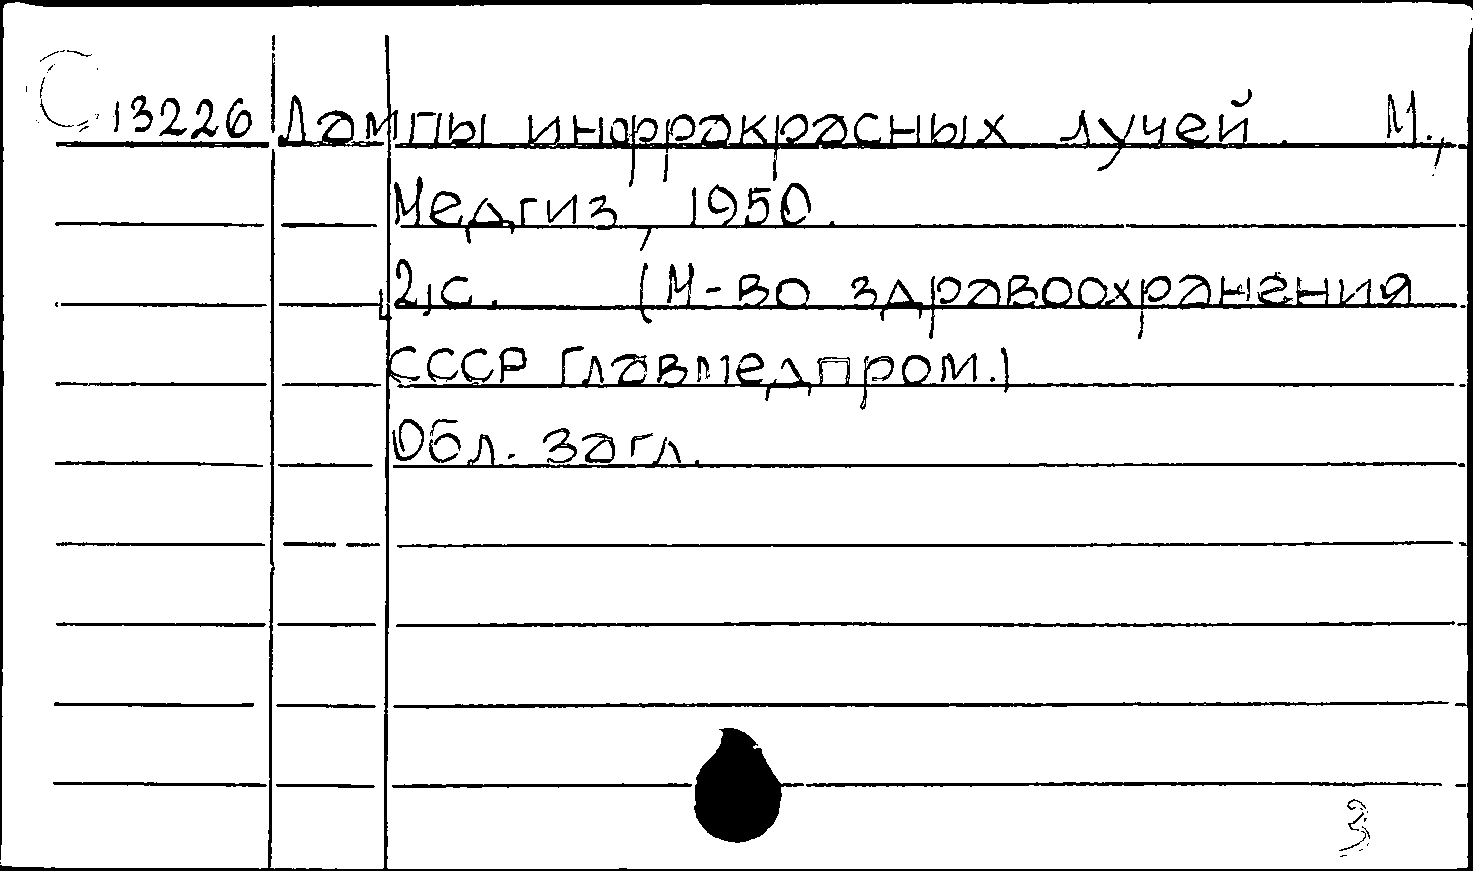 С 13226 Лампы инфракрасных лучей. М.,
Медгиз, 1950.
2 с. (М-во здравоохранения
СССР Главмедпром.)
Обл. загл.
3